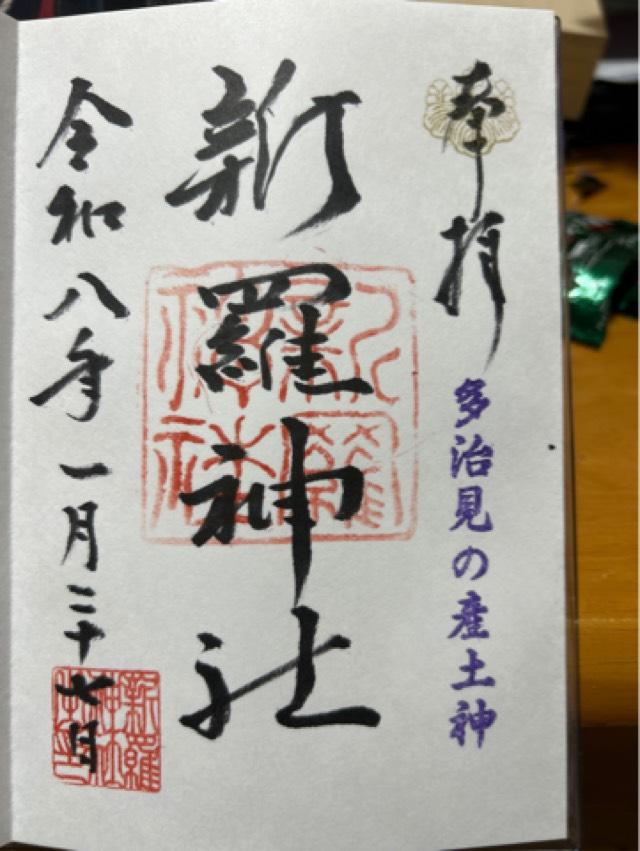 奉拝
多治見の産土神
新羅神社
新羅神社
令和八年一月二十七日
新羅神社之印